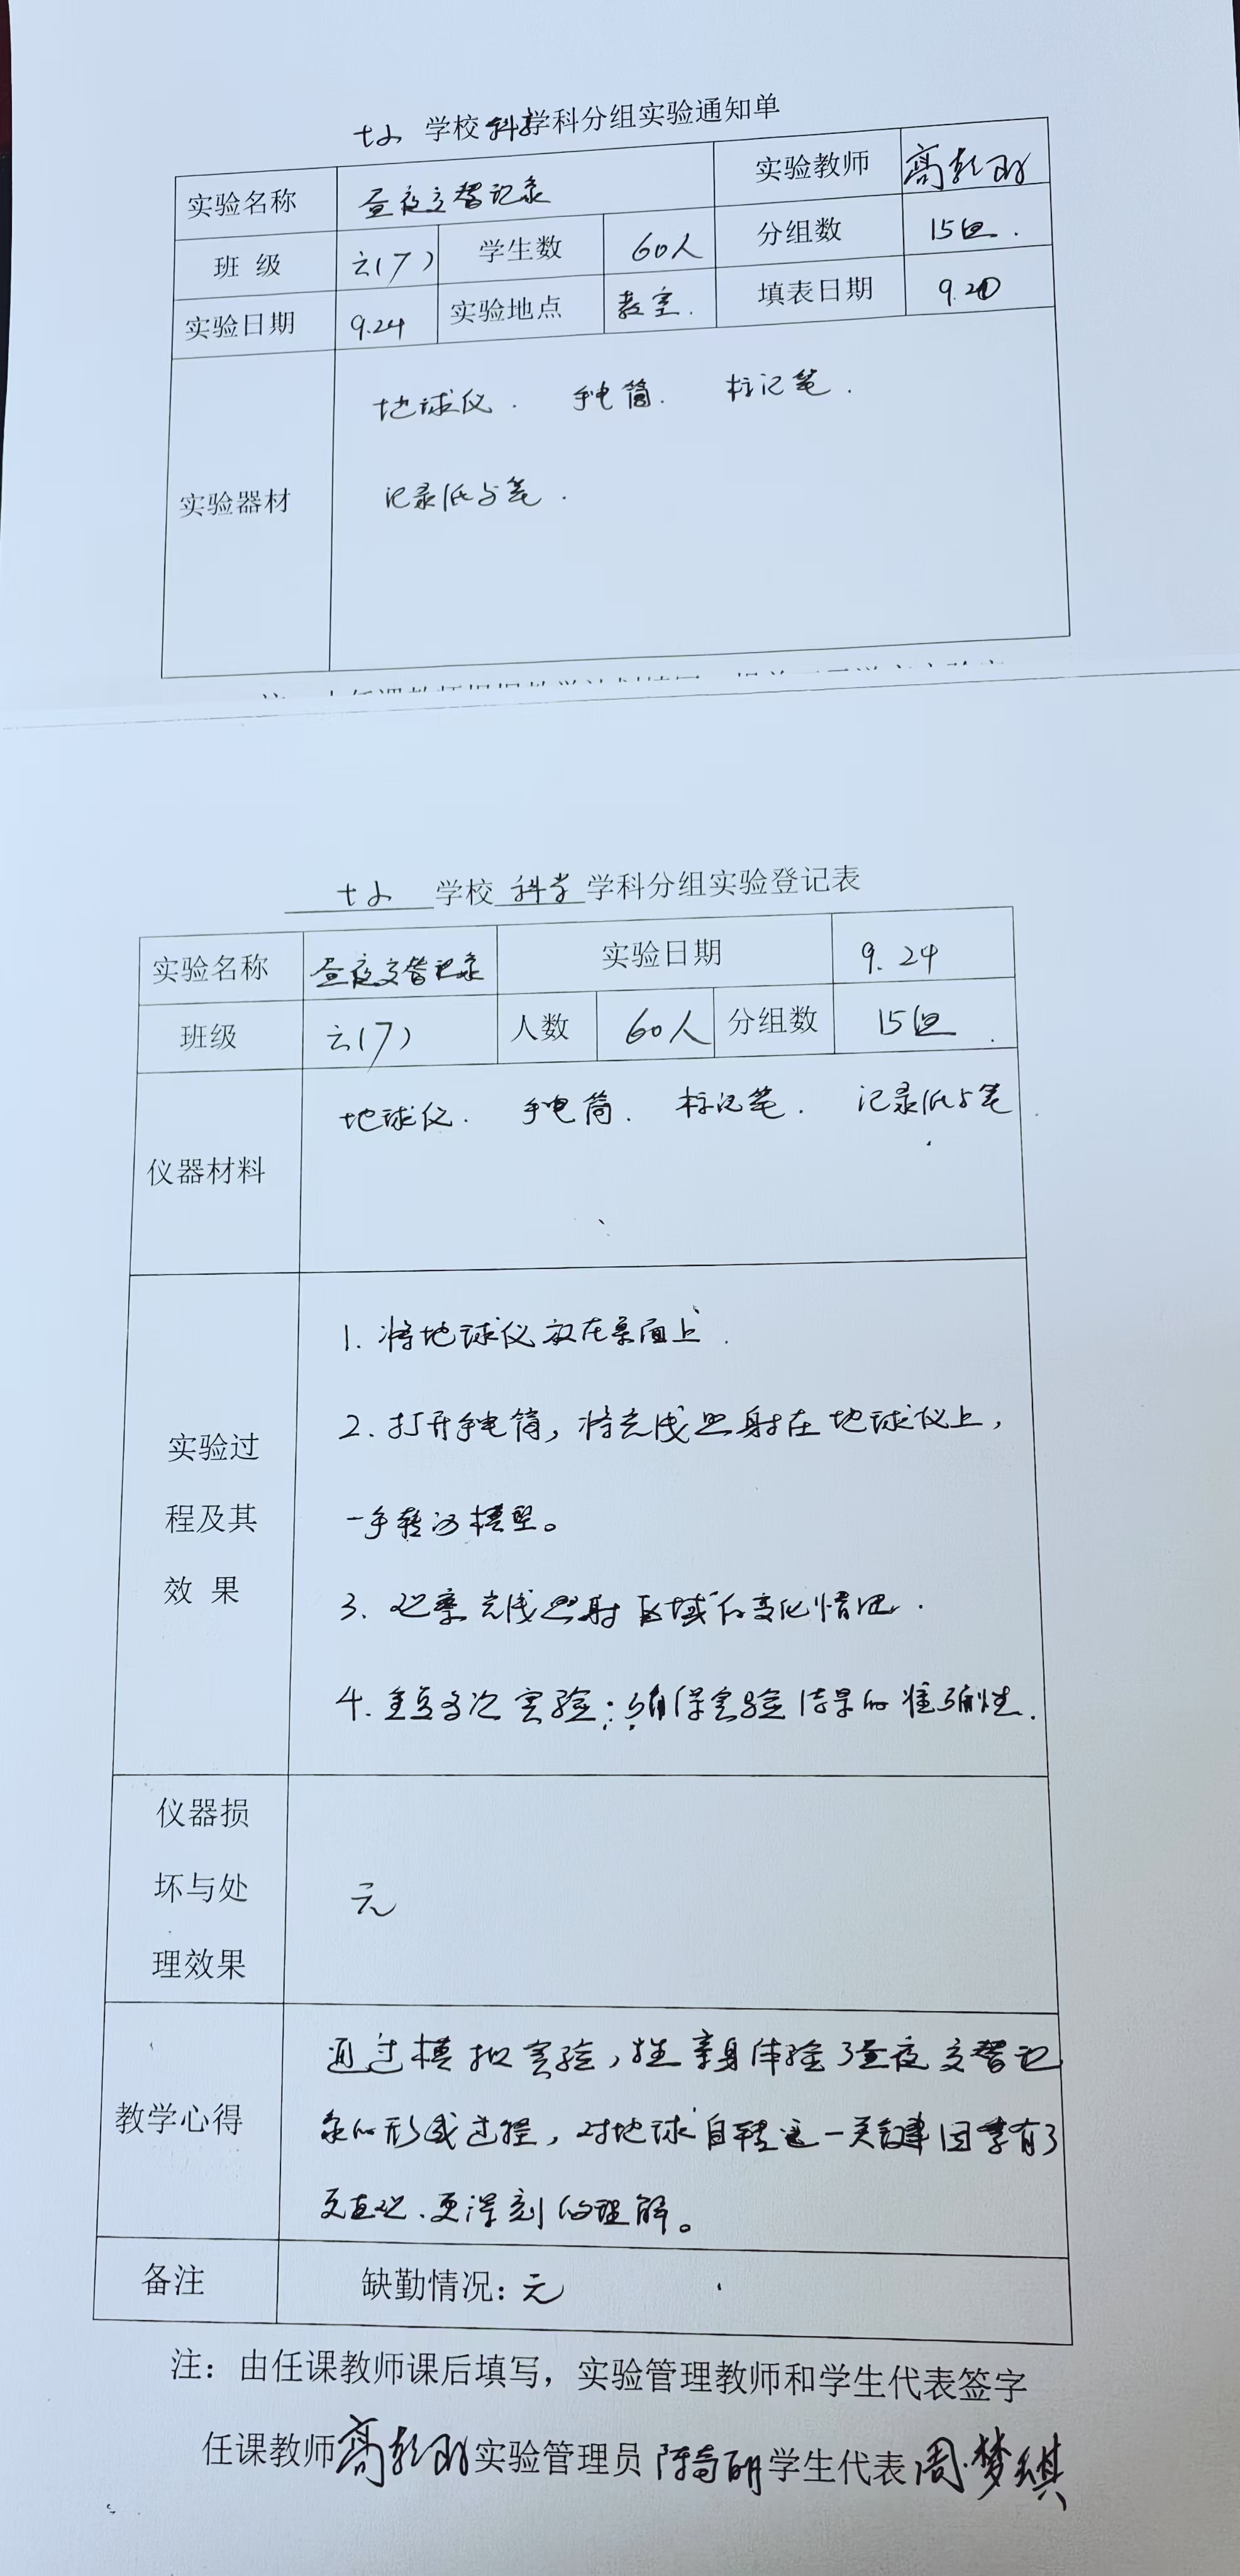 七小 学校 科学 学科分组实验通知单
实验名称 昼夜交替记录 实验教师
班 级 (7) 学生数 60人 分组数 15组.
实验日期 9.24 实验地点 教室. 填表日期 9.20
实验器材 地球仪. 手电筒. 标记笔.
记录纸与笔.
七小 学校 科学 学科分组实验登记表
实验名称 昼夜交替记录 实验日期 9.24
班级 (7) 人数 60人 分组数 15组
仪器材料 地球仪. 手电筒. 标记笔. 记录纸与笔
实验过
程及其
效 果
1. 将地球仪放在桌面上.
2. 打开手电筒, 将光线照射在地球仪上,
一手转动模型。
3. 观察光线照射区域的变化情况.
4. 重复多次实验; 确保实验结果的准确性.
仪器损
坏与处
理效果
无
教学心得
通过模拟实验, 学生亲身体验了昼夜交替记
录的形成过程, 对地球自转这一关键因素有了
更直观、更深刻的理解。
备注 缺勤情况: 无
注: 由任课教师课后填写, 实验管理教师和学生代表签字
任课教师 实验管理员 学生代表 周梦琪